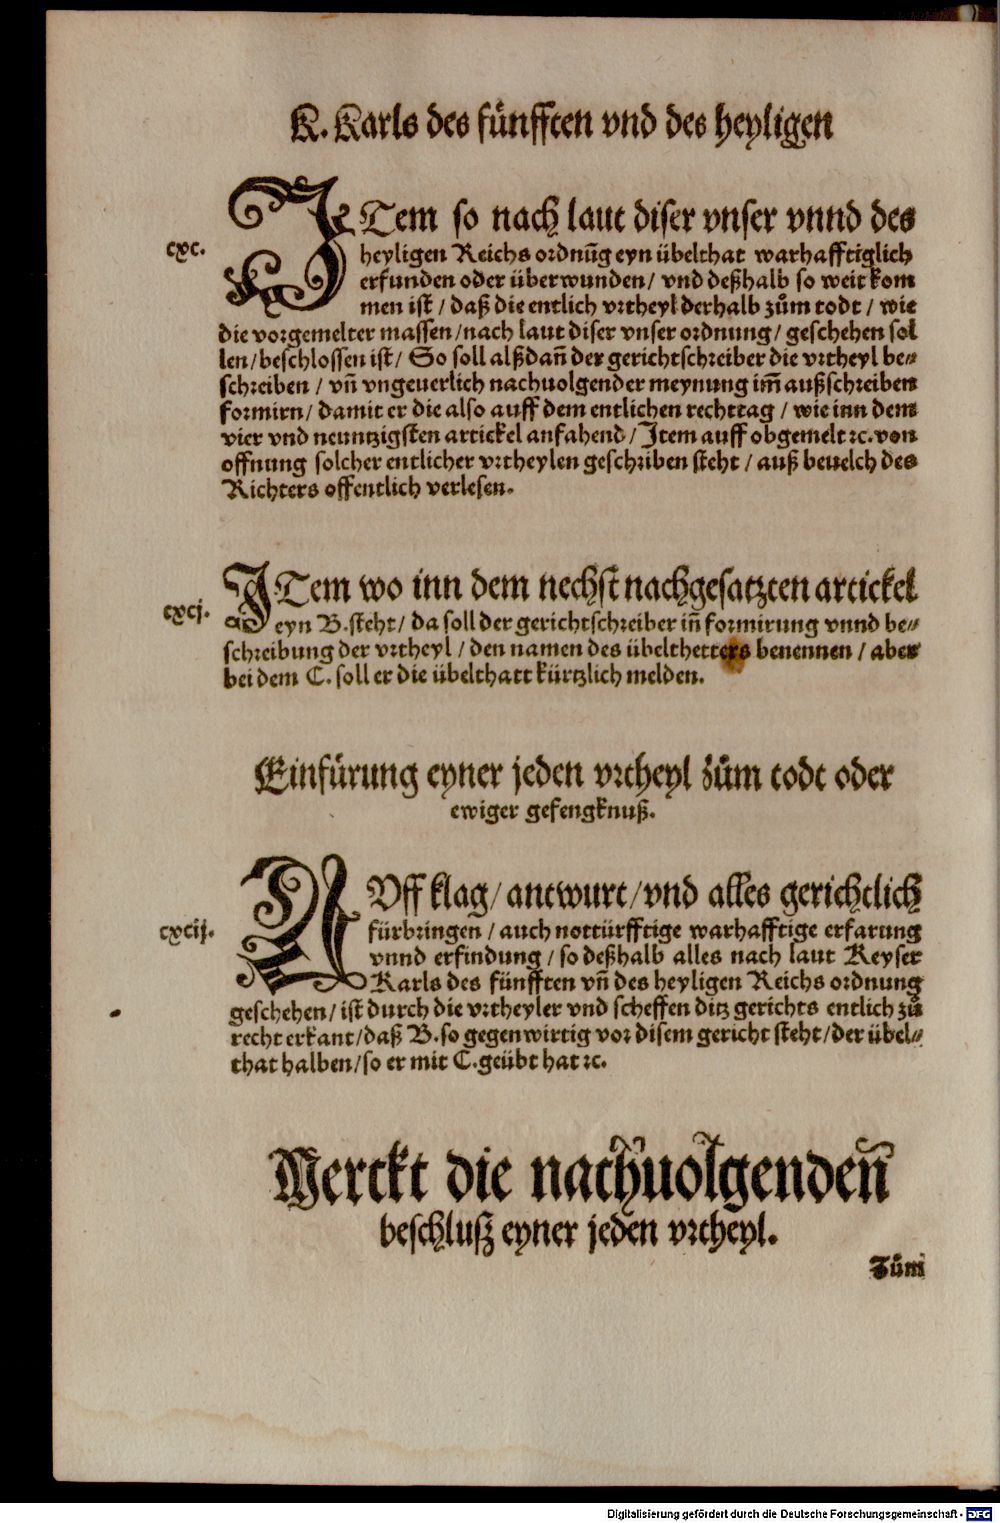 K. Karls des fünfften vnd des heyligen
cxc.
ITem so nach laut diser vnser vnnd des
heyligen Reichs ordnūg eyn übelthat warhafftiglich
erfunden oder überwunden / vnd deßhalb so weit kom
men ist / daß die entlich vrtheyl derhalb zům todt / wie
die vorgemelter massen / nach laut diser vnser ordnung / geschehen sol
len / beschlossen ist / So soll alßdañ der gerichtschreiber die vrtheyl be⸗
schreiben / vñ vngeuerlich nachuolgender meynung im̃ außschreiben
formirn / damit er die also auff dem entlichen rechttag / wie inn dem
vier vnd neuntzigsten artickel anfahend / Item auff obgemelt ꝛc. von
offnung solcher entlicher vrtheylen geschriben steht / auß beuelch des
Richters offentlich verlesen.
cxcj.
ITem wo inn dem nechst nachgesatzten artickel
eyn B. steht / da soll der gerichtschreiber iñ formirung vnnd be⸗
schreibung der vrtheyl / den namen des übelthetters benennen / aber
bei dem C. soll er die übelthatt kürtzlich melden.
Einfürung eyner jeden vrtheyl zům todt oder
ewiger gefengknuß.
cxcij.
AVff klag / antwurt / vnd alles gerichtlich
fürbringen / auch nottürfftige warhafftige erfarung
vnnd erfindung / so deßhalb alles nach laut Keyser
Karls des fünfften vñ des heyligen Reichs ordnung
geschehen / ist durch die vrtheyler vnd scheffen ditz gerichts entlich zů
recht erkant / daß B. so gegenwirtig vor disem gericht steht / der übel⸗
that halben / so er mit C. geübt hat ꝛc.
Merckt die nachuolgendeñ
beschluß eyner jeden vrtheyl.
Zům
Digitalisierung gefördert durch die Deutsche Forschungsgemeinschaft - DFG